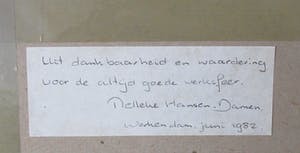 Uit dankbaarheid en waardering
voor de altijd goede werksfeer.
Nelleke Hansen-Damen.
Werkendam, juni 1982